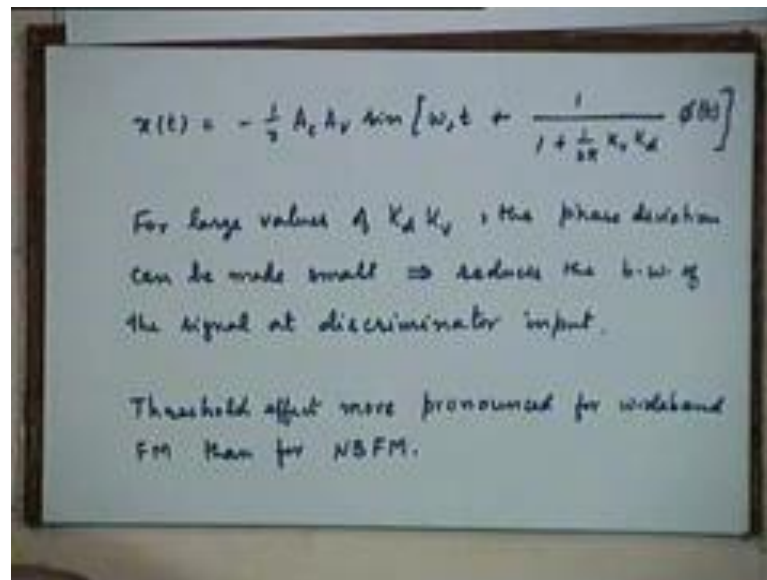 x(t) = - 1/2 A_c A_v sin [ω_1 t + 1/(1 + 1/2π K_v K_d) φ(t)]
For large values of K_d K_v, the phase deviation
can be made small ⇒ reduces the b.w. of
the signal at discriminator input.
Threshold effect more pronounced for wideband
FM than for NBFM.